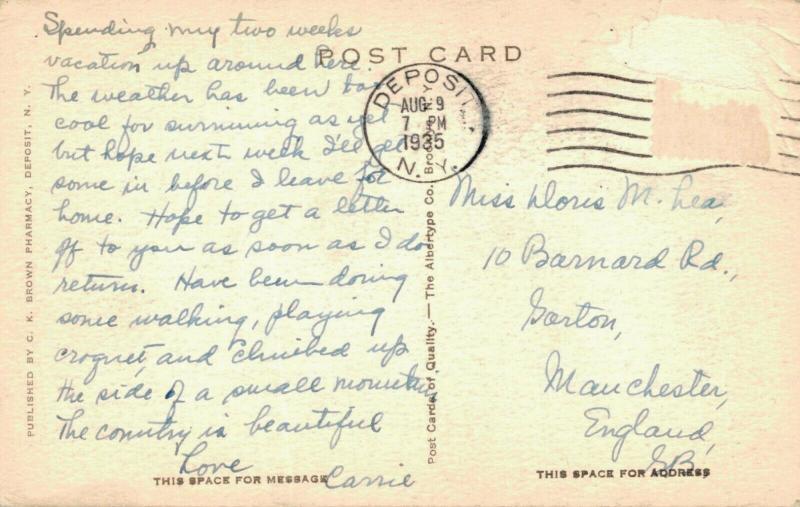 Spending my two weeks
vacation up around here.
The weather has been too
cool for swimming as yet
but hope next week I'll get
some in before I leave for
home. Hope to get a letter
off to you as soon as I do
return. Have been doing
some walking, playing
croquet, and Climbed up
the side of a small mountain.
The country is beautiful
Love
Carrie
THIS SPACE FOR MESSAGE
PUBLISHED BY C. K. BROWN PHARMACY, DEPOSIT, N. Y.
POST CARD
DEPOSIT
AUG 9
7 PM
1935
N. Y.
Post Cards of Quality. — The Albertype Co., Brooklyn, N. Y.
Miss Doris M. Lea,
10 Barnard Rd.,
Gorton,
Manchester,
England,
G.B.
THIS SPACE FOR ADDRESS